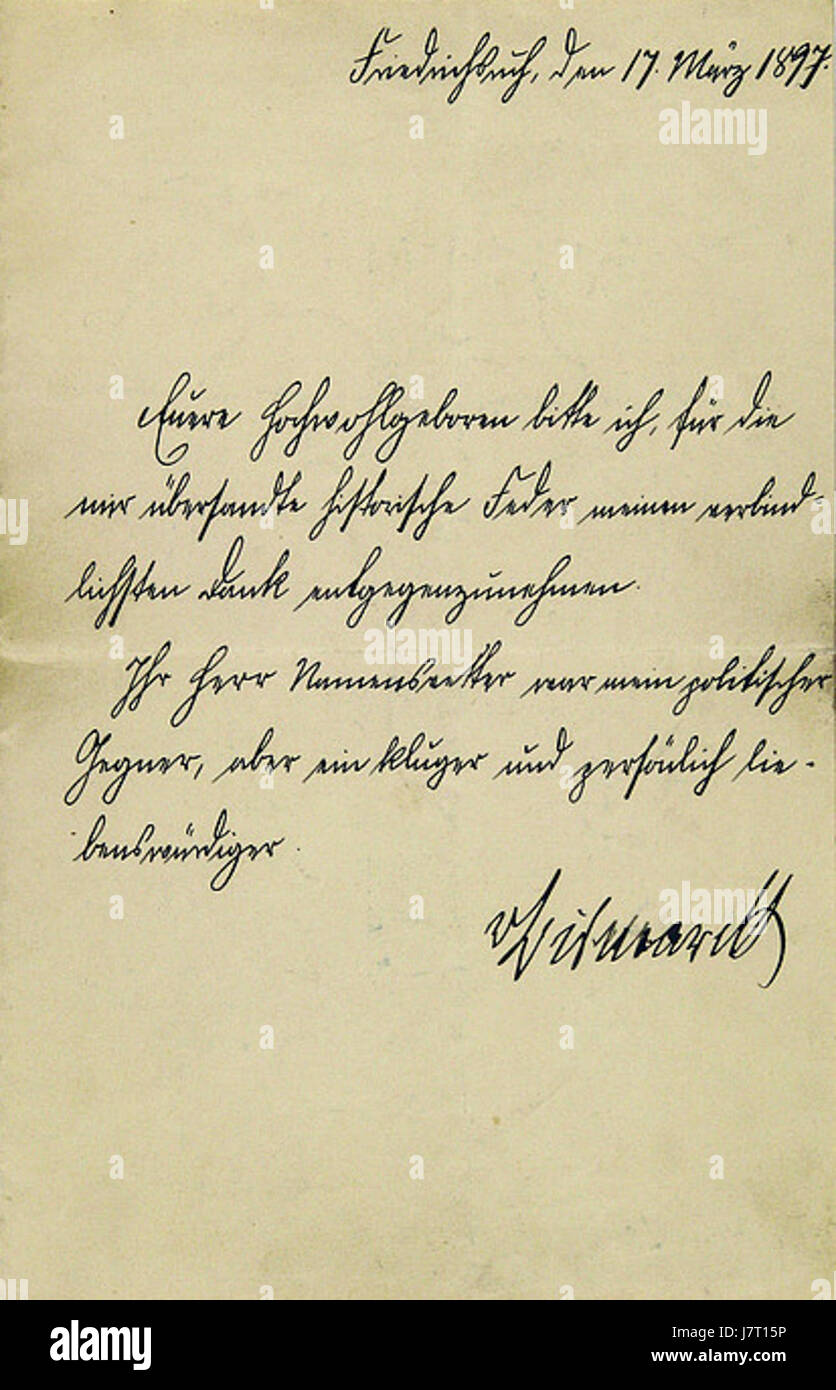 Friedrichsruh, den 17. März 1897.
Euere Hochwohlgeboren bitte ich, für die
mir übersandte historische Feder meinen verbind-
lichsten Dank entgegenzunehmen.
Ihr Herr Namensvetter war mein politischer
Gegner, aber ein kluger und persönlich lie-
benswürdiger.
v Bismarck
alamy stock photo
alamy
Image ID: J7T15P
www.alamy.com